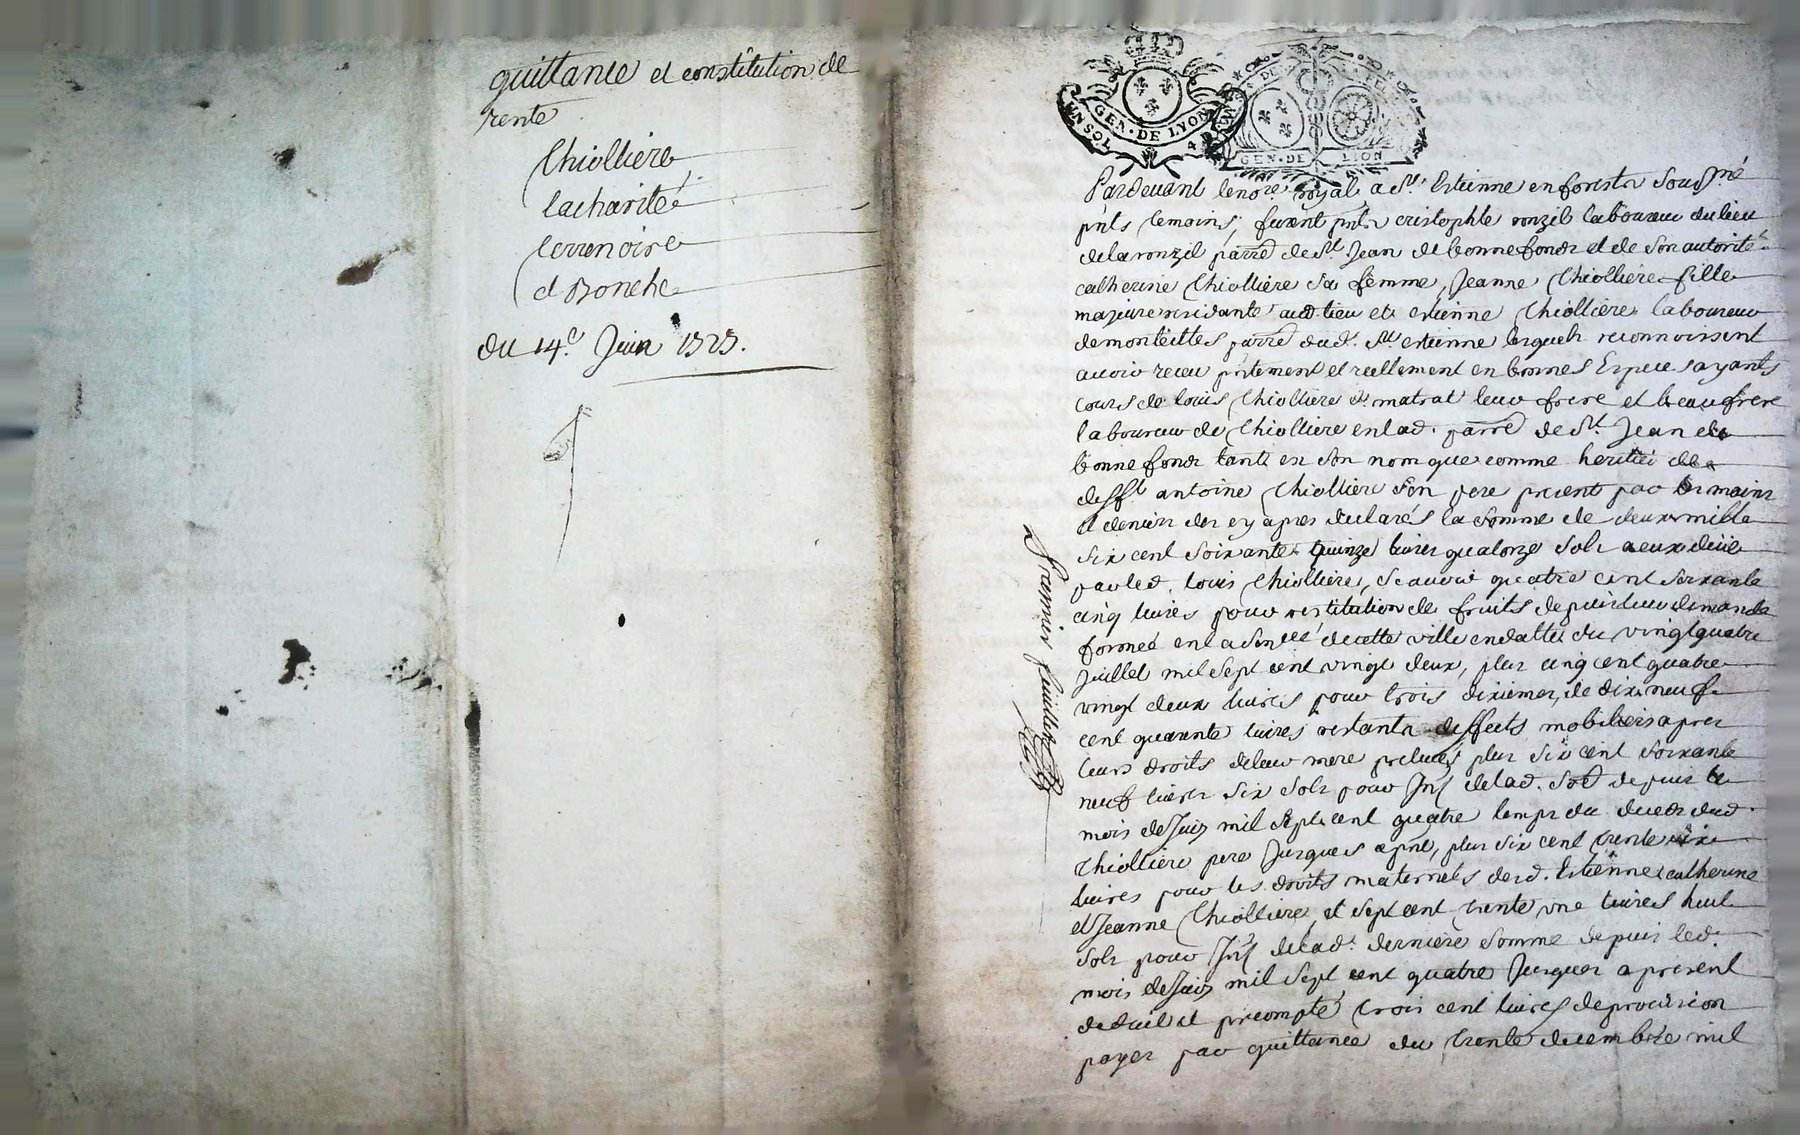 quittance et constitution de
rente
Chiolliere
lacharité
terrenoire
et Ronche
du 14e. Juin 1725.
UN SOL GEN. DE LYON 4 D
GEN. DE LION
Pardevant le nore. royal a St. Estienne en forestz sousné
pnts temoins, furent pnts cristophle ronzil laboureur du lieu
de la ronzil parre de St. Jean de bonnefondz et de son autorité
catherine Chiolliere sa femme, Jeanne Chiolliere fille
majeure residante aud. lieu et estienne Chiolliere laboureur
de monteilles parre dud. St. estienne lesquels reconnoissent
avoir receu pntement et reellement en bonnes Especes ayants
cours de louis Chiolliere matrat leur frere et beaufrere
laboureur de Chiolliere en lad. parre de St. Jean de
bonnefondz tant en son nom que comme heritier de
defft antoine Chiolliere son pere present par les mains
et deniers des cy apres declarés la somme de deux mille
six cent soixante quinze livres quatorze sols a eux deüe
par led. louis Chiolliere, scavoir quatre cent soixante
cinq livres pour restitution de fruits depuis leur demande
formée en la sen.ée de cette ville en datte du vingt quatre
juillet mil sept cent vingt deux, plus cinq cent quatre
vingt deux livres pour trois dixiemes, de dix neuf
cent quarante livres restants deffects mobiliers apres
leurs droits de leur mere prelevés plus six cent soixante
neuf livres six sols pour Jnt de lad. so.e depuis le
mois de Juin mil sept cent quatre temps du deces dud.
Chiolliere pere Jusques a pnt, plus six cent trente six
livres pour les droits maternels desd. Estienne catherine
et Jeanne Chiolliere, et sept cent trente une livres huit
sols pour Jnt de lad. derniere somme depuis led.
mois de Juin mil sept cent quatre Jusques a present
deduit et precompté trois cent livres de provision
payer par quittance du trente decembre mil
premier feuillet